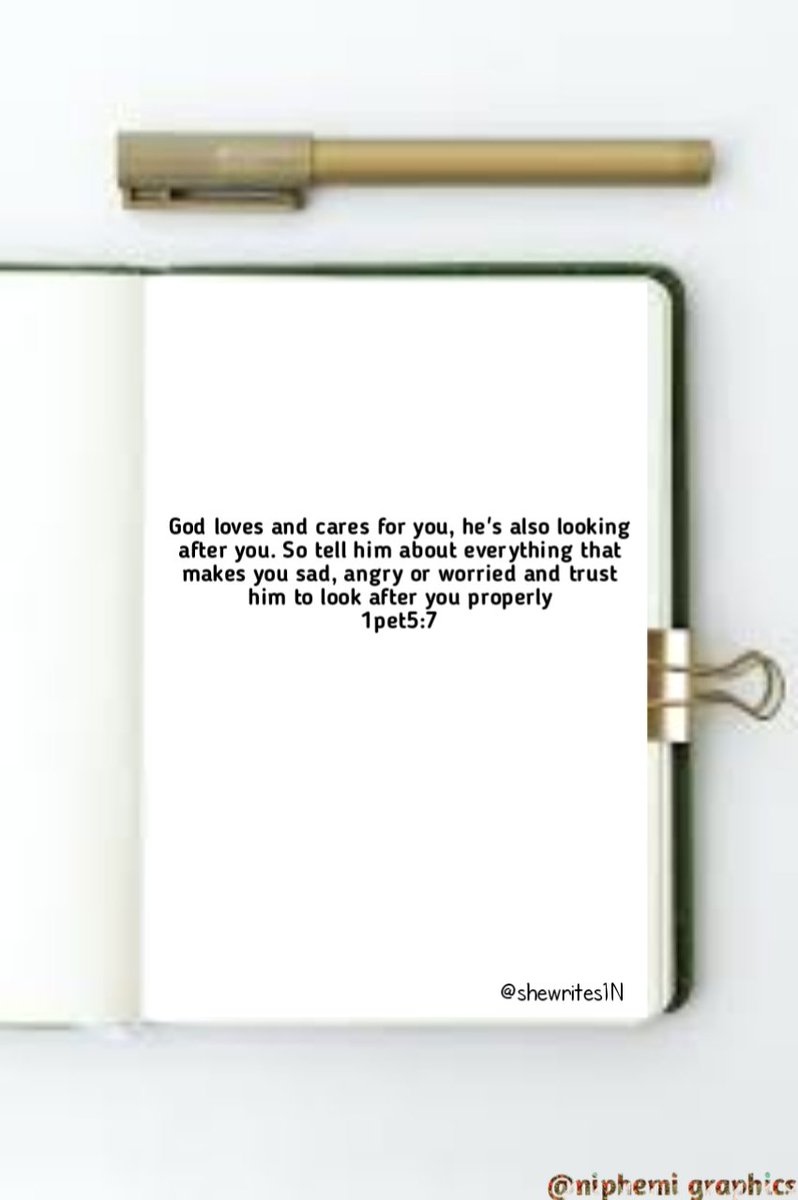 God loves and cares for you, he's also looking
after you. So tell him about everything that
makes you sad, angry or worried and trust
him to look after you properly
1pet5:7
@shewrites1N
@niphemi graphics